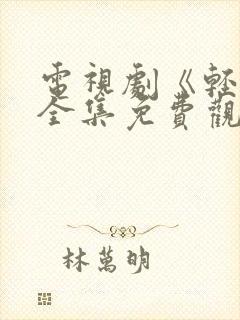 電視劇《輕
全集免費觀
林萬明